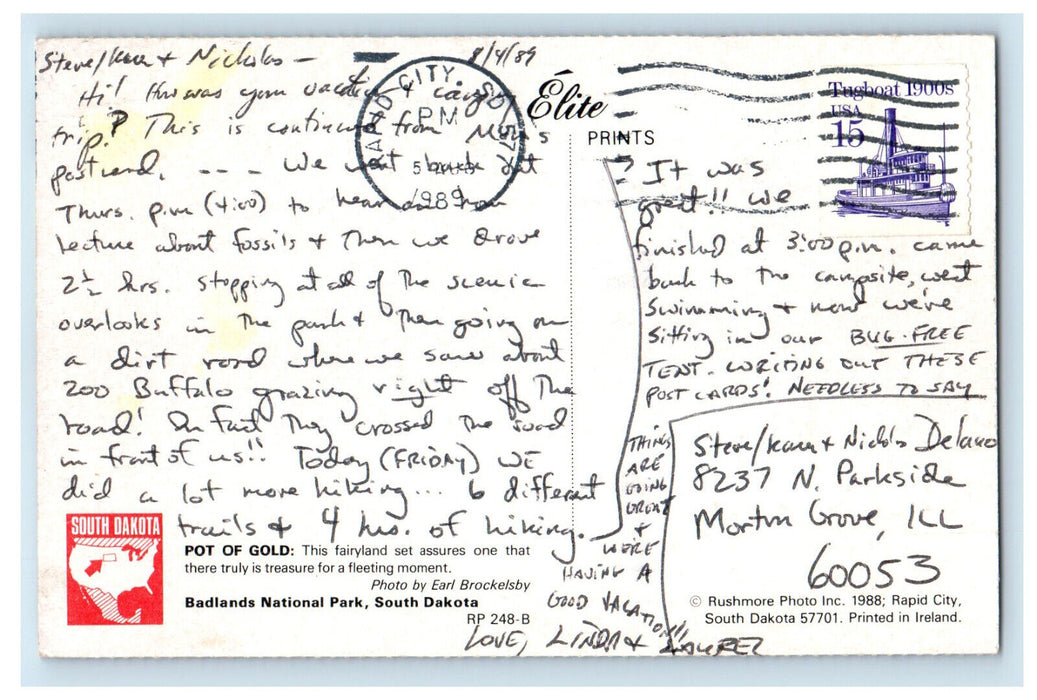 8/4/89
Steve/Kara + Nicholas —
Hi! How was your vacation & camp
trip? This is continued from Mom's
postcard. ---- We went back out
Thurs. p.m (4:00) to hear an hour
lecture about fossils + Then we drove
2½ hrs. stopping at all of The scenic
overlooks in The park + Then going on
a dirt road where we saw about
200 Buffalo grazing right off The
road! In fact They crossed The road
in front of us!! Today (FRIDAY) WE
did a lot more hiking... 6 different
trails + 4 hrs. of hiking.
? It was
great!! We
finished at 3:00 p.m. came
back to The campsite, went
swimming + now we're
sitting in our BUG-FREE
TENT. WRITING OUT THESE
POST CARDS! NEEDLESS TO SAY
THINGS
ARE
GOING
GREAT
+
WE'RE
HAVING A
GOOD VACATION!!!
LOVE, LINDA + LAUREL
Élite
PRINTS
RAPID CITY, SD 577
PM
5 AUG
1989
Tugboat 1900s
USA
15
Steve/Kara + Nicholas Delano
8237 N. Parkside
Morton Grove, ILL
60053
SOUTH DAKOTA
POT OF GOLD: This fairyland set assures one that
there truly is treasure for a fleeting moment.
Photo by Earl Brockelsby
Badlands National Park, South Dakota
RP 248-B
© Rushmore Photo Inc. 1988; Rapid City,
South Dakota 57701. Printed in Ireland.